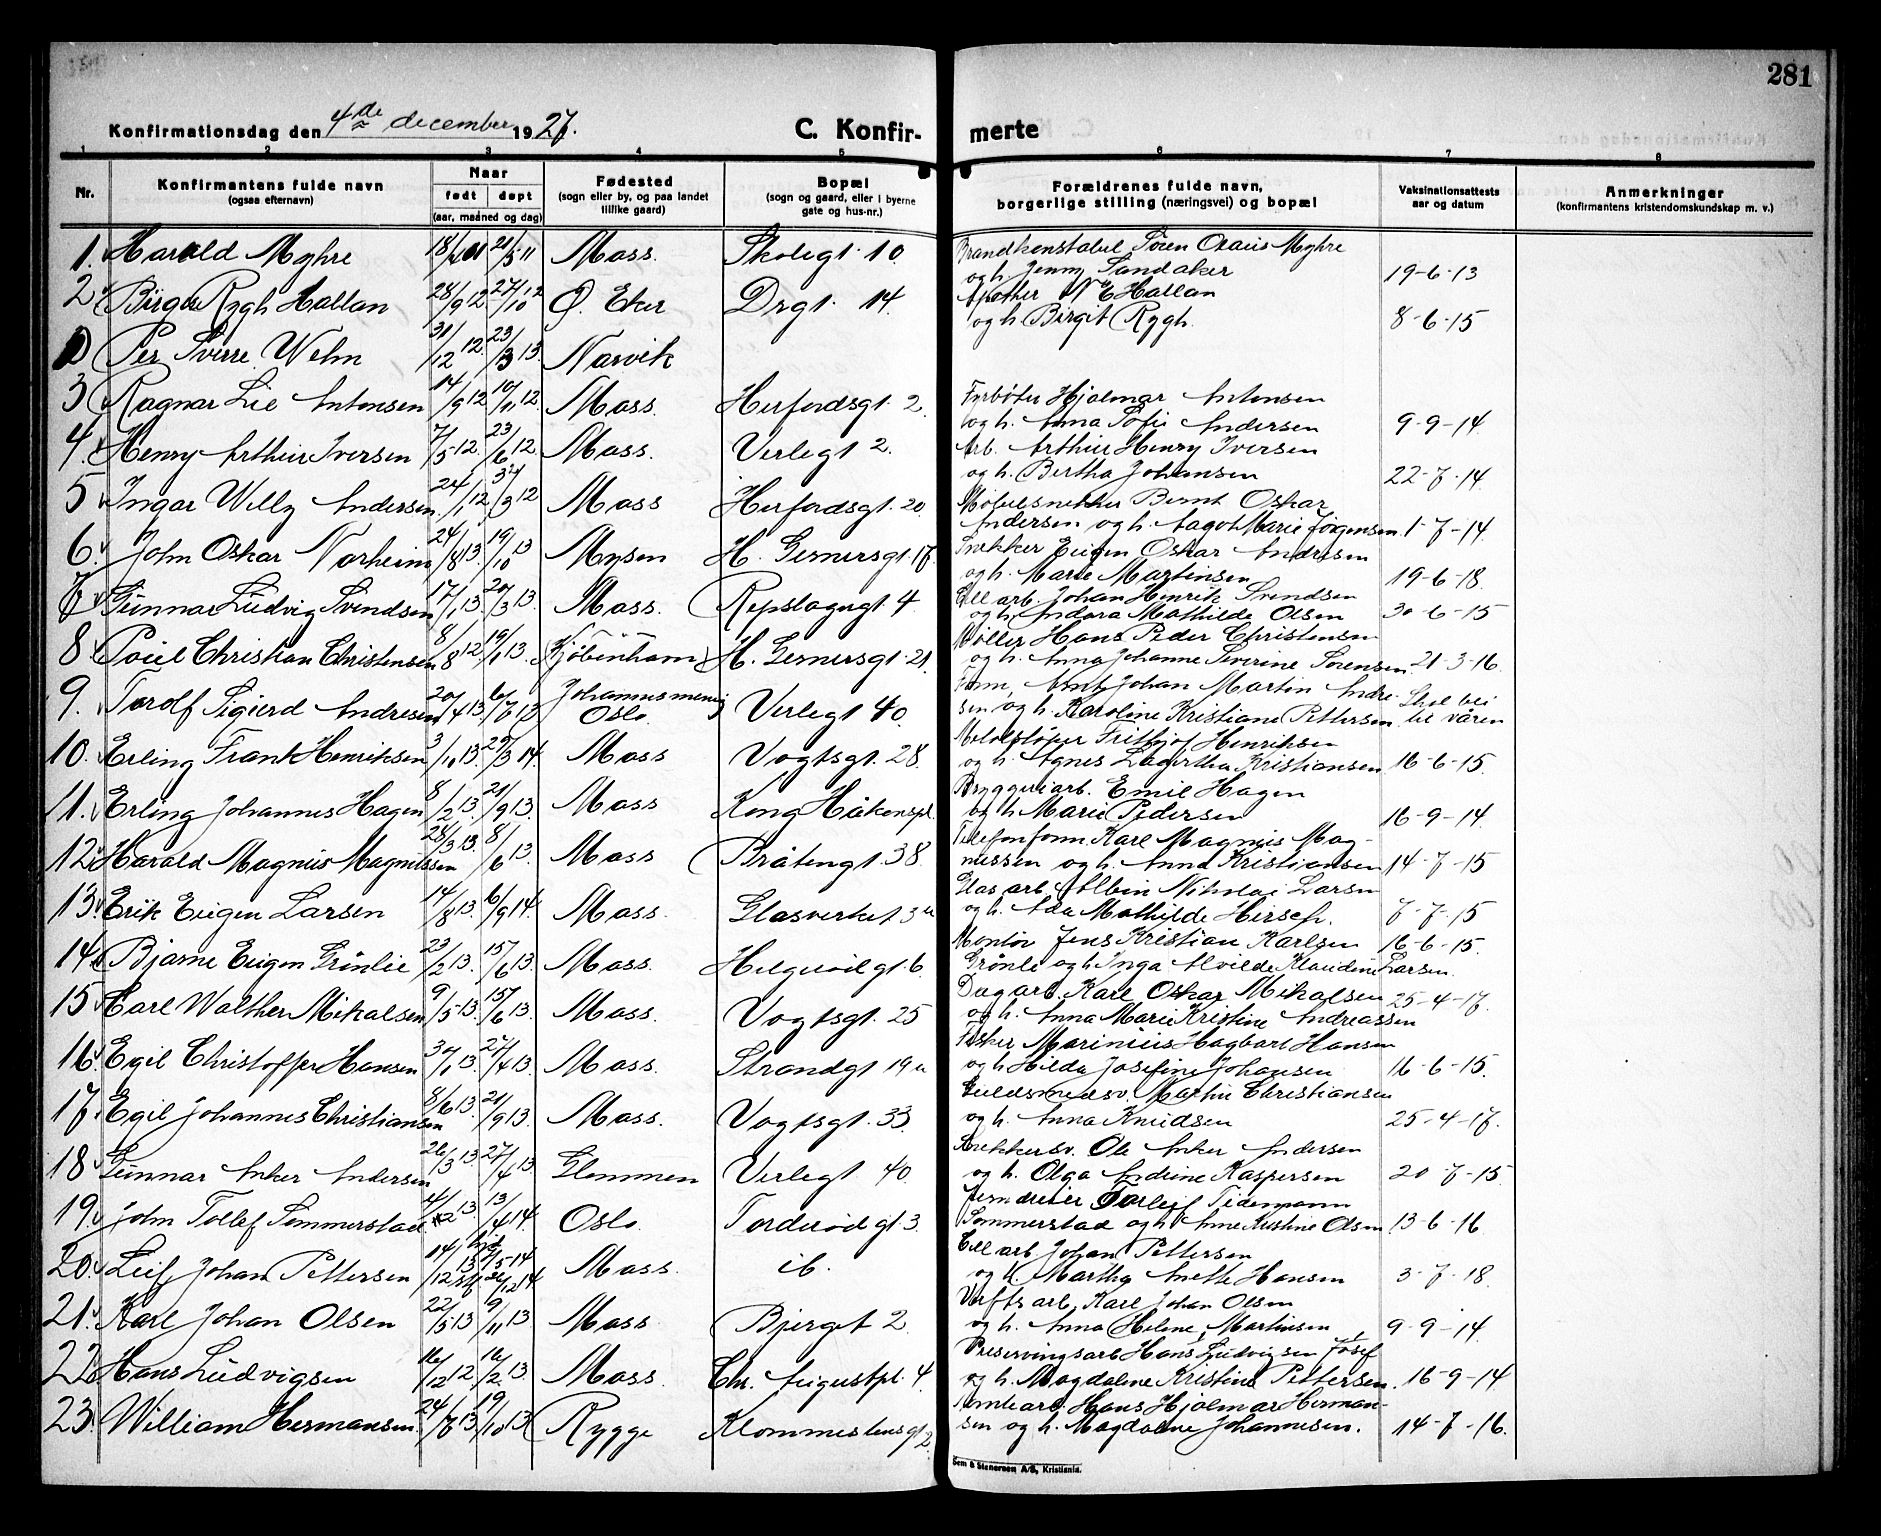 281
Konfirmationsdag den 4de december 1927.
C. Konfirmerte
1 2 3 4 5 6 7 8
Nr.
Konfirmantens fulde navn
(ogsaa efternavn)
Naar
født døpt
(aar, maaned og dag)
Fødested
(sogn eller by, og paa landet
tillike gaard)
Bopæl
(sogn og gaard, eller i byerne
gate og hus-nr.)
Forældrenes fulde navn,
borgerlige stilling (næringsvei) og bopæl
Vaksinationsattests
aar og datum
Anmerkninger
(konfirmantens kristendomskundskap m. v.)
1. Harald Myhre 21/5 11 Moss. Skolegt. 10 Brandkonstabel Søren Olaus Myhre
og h. Jenny Sandaker 19-6-13
2 Birger Rygh Hallan 28/9 12 27/10 12 Ø. Eker Drgt. 14. Apother N E Hallan
og h. Birgit Rygh. 8-6-15
Per Sverre Wehn 31/12 12. 23/3 13. Narvik
3 Ragnar Lie Antonsen 14/9 12 10/11 12. Moss. Herfordsgt. 2. Fyrbøter Hjalmar Antonsen
og h. Anna Sofie Andersen 9-9-14
4. Henry Arthur Iversen 7/5-12. 23/6 12. Moss. Verlegt 2. Arb. Arthur Henry Iversen
og h. Bertha Johansen 22-7-14
5 Ingar Willy Andersen 24/1 12 31/3 12 Moss Herfordsgt. 20. Møbelsnekker Bernt Oskar
Andersen og h. Aagot Marie Jørgensen 1-7-14.
6. John Oskar Norheim 24/8 13. 19/10 13 Mysen H. Gernersgt. 17. Snekker Eugen Oskar Andresen
og h. Marie Martinsen 19-6-18.
7 Gunnar Ludvig Svendsen 17/1 13. 20/3 13. Moss. Repslagergt. 4 Cell.arb. Johan Henrik Svendsen
og h. Indara Mathilde Olsen 30-6-15
8 Poul Christian Christensen 8/8 12 19/1 13. Kjøbenhavn H. Gernersgt. 21. Møller Hans Peder Christensen
og h. Anna Johanne Severine Sørensen 21-3-16.
9. Torolf Sigurd Andresen 20/4 13. Johannesmenig
Oslo. Verlegt 40. Form. Arnt Johan Martin Andre-
sen og h. Karoline Kristiane Pettersen.
10. Erling Frank Henriksen 3/10 13. 29/3 14. Moss Vogtsgt. 28. Fritjof Henriksen
og h. Agnes Lagertha Kristiansen 16-6-15.
11. Erling Johannes Hagen 8/2 13. 21/9 13. Moss Kong Håkonspl. Bryggeriarb. Emil Hagen
og h. Marie Pedersen 16-9-14.
12. Harald Magnus Magnussen 28/3 13. 8/6 13. Moss Bråtengt. 38. Telefonform. Karl Magnus Mag-
nussen og h. Anna Kristiansen 14-7-15
13. Erik Eugen Larsen 14/8 13. 6/9 14. Moss. Glasverket 3a Glasarb. Albin Nikolai Larsen
og h. Ada Mathilde Hirsch. 7-7-15
14. Bjarne Eugen Grønlie 23/2 13. 15/6 13. Moss. Helgerødgt. 6. Montør Jens Kristian Karlsen 16-6-15.
Grønle og h. Inga Alvilde Klaudine Larsen.
15 Carl Walther Mikalsen 9/5-13. 15/6 13. Moss. Vogtsgt. 25 Dagarb. Karl Oskar Mikalsen 25-4-17.
og h. Anna Marie Kristine Andreassen
16. Egil Christoffer Hansen 30/1 13. 27/4 13. Moss. Strandgt 19a Fisker Marinius Hagbart Hansen
og h. Hilda Josefine Johansen 16-6-15.
17. Egil Johannes Christiansen 8/6 13. 21/9 13. Moss. Vogtsgt. 33. Guldsmedsv. Martin Christiansen
og h. Anna Knudsen 25-4-17.
18 Gunnar Anker Andersen 26/3 13 Glemmen Verlegt 40. Snekkersv. Ole Anker Andersen
og h. Olga Andrine Kaspersen 20-7-15
19. John Tollef Sommerstad 13/4 14. Oslo. Torderødgt 3. Jerndreier Torleif Tidemann
Sommerstad og h. Anne Kristine Olsen. 13-6-16
20. Leif Johan Pettersen 14/12 13 Moss. ib. Cell.arb Johan Pettersen
og h. Martha Anette Hansen 3-7-18.
21. Karl Johan Olsen 22/5-13 9/11 13 Moss. Bjerget 2. Verftsarb. Karl Johan Olsen
og h. Anna Helene Martinsen 9-9-14.
22. Hans Ludvigsen 16/12 12. 16/2 13. Moss. Chr. Augustpl. 4. Preservingsarb Hans Ludvigsen Josef
og h. Magdalene Kristine Pettersen. 16-9-14
23. William Hermansen. 19/10 13 Rygge Klommestensgt 2. Hans Hjalmar Herman-
sen og h. Magdalene Johannesen. 14-7-16.
Sem & Stenersen A/S, Kristiania.